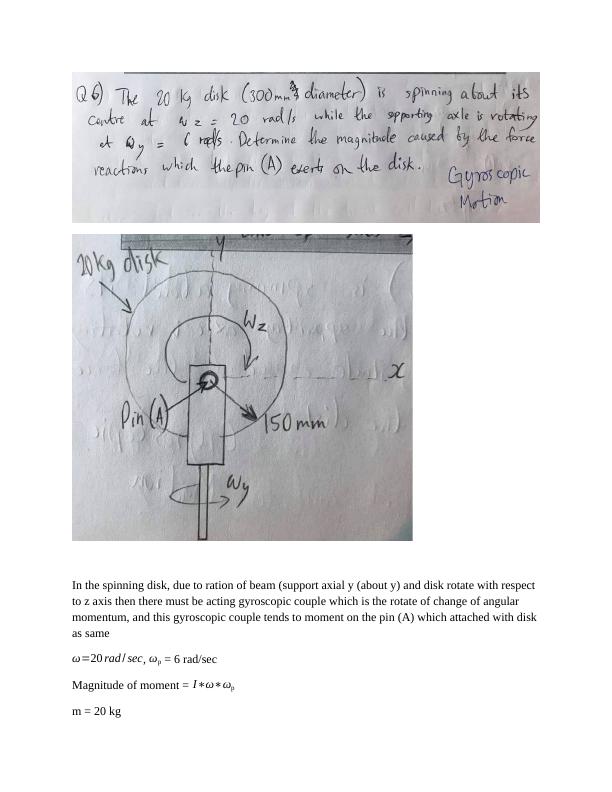 Q6) The 20 kg disk (300mm diameter) is spinning about its
centre at wz = 20 rad/s while the spporting axle is rotating
at ωy = 6 rad/s. Determine the magnitude caused by the force
reactions which the pin (A) exerts on the disk.
Gyroscopic
Motion
y
20kg disk
Wz
x
Pin (A)
150mm
Wy
In the spinning disk, due to ration of beam (support axial y (about y) and disk rotate with respect
to z axis then there must be acting gyroscopic couple which is the rotate of change of angular
momentum, and this gyroscopic couple tends to moment on the pin (A) which attached with disk
as same
ω=20 rad/sec, ωp = 6 rad/sec
Magnitude of moment = I∗ω∗ωp
m = 20 kg